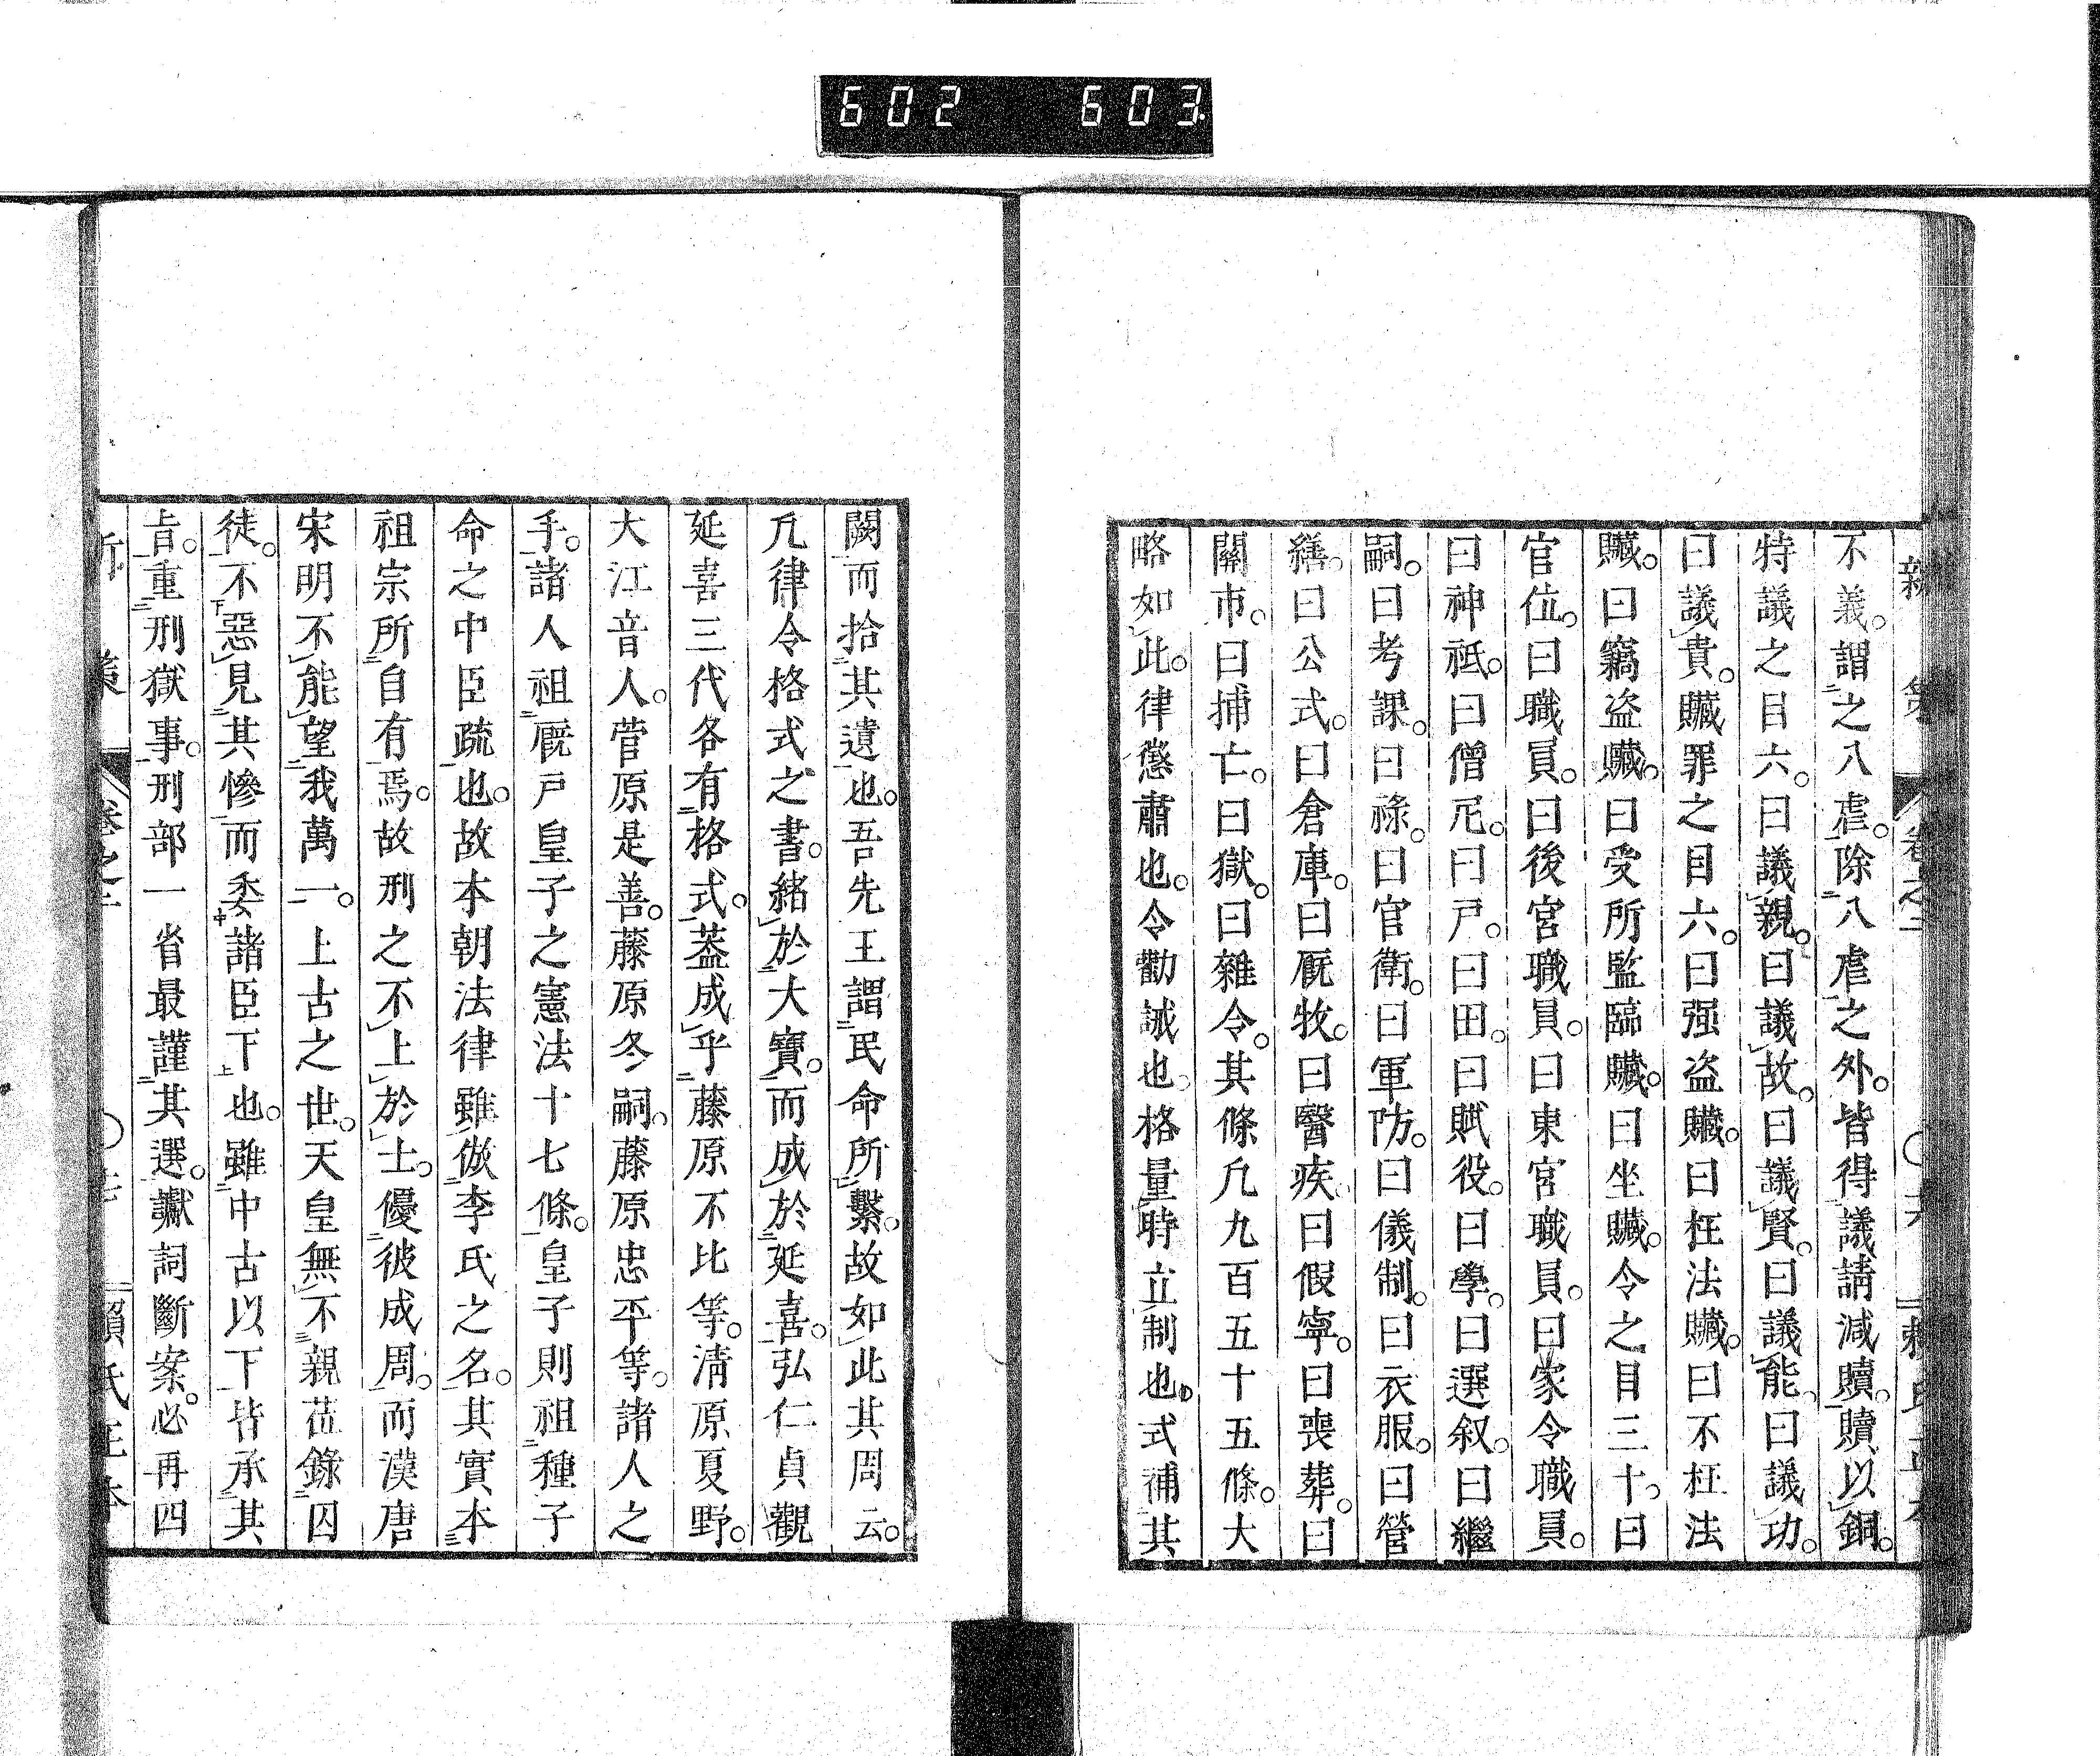 602 603
不義。謂之八虐。除八虐之外。皆得議請減贖。贖以銅。
特議之目六。曰議親。曰議故。曰議賢。曰議能。曰議功。
曰議貴。贓罪之目六。曰强盗贓。曰枉法贓。曰不枉法
贓。曰竊盗贓。曰受所監臨贓。曰坐贓。令之目三十。曰
官位。曰職員。曰後宮職員。曰東宮職員。曰家令職員。
曰神祇。曰僧尼。曰戸。曰田。曰賦役。曰學。曰選叙。曰繼
嗣。曰考課。曰祿。曰官衛。曰軍防。曰儀制。曰衣服。曰營
繕。曰公式。曰倉庫。曰厩牧。曰醫疾。曰假寧。曰喪葬。曰
關市。曰捕亡。曰獄。曰雜令。其條凡九百五十五條。大
略如此。律懲肅也。令勸誡也。格量時立制也。式補其
闕而拾其遺也。吾先王謂民命所繫。故如此其周云。
凡律令格式之書。緒於大寶。而成於延喜。弘仁貞觀
延喜三代各有格式。葢成乎藤原不比等。淸原夏野。
大江音人。菅原是善。藤原冬嗣。藤原忠平等。諸人之
手。諸人祖厩戸皇子之憲法十七條。皇子則祖種子
命之中臣疏也。故本朝法律雖倣李氏之名。其實本
祖宗所自有焉。故刑之不上於士。優彼成周。而漢唐
宋明不能望我萬一。上古之世。天皇無不親莅錄囚
徒。不惡見其慘而委諸臣下也。雖中古以下皆承其
旨。重刑獄事。刑部一省最謹其選。讞詞斷案。必再四